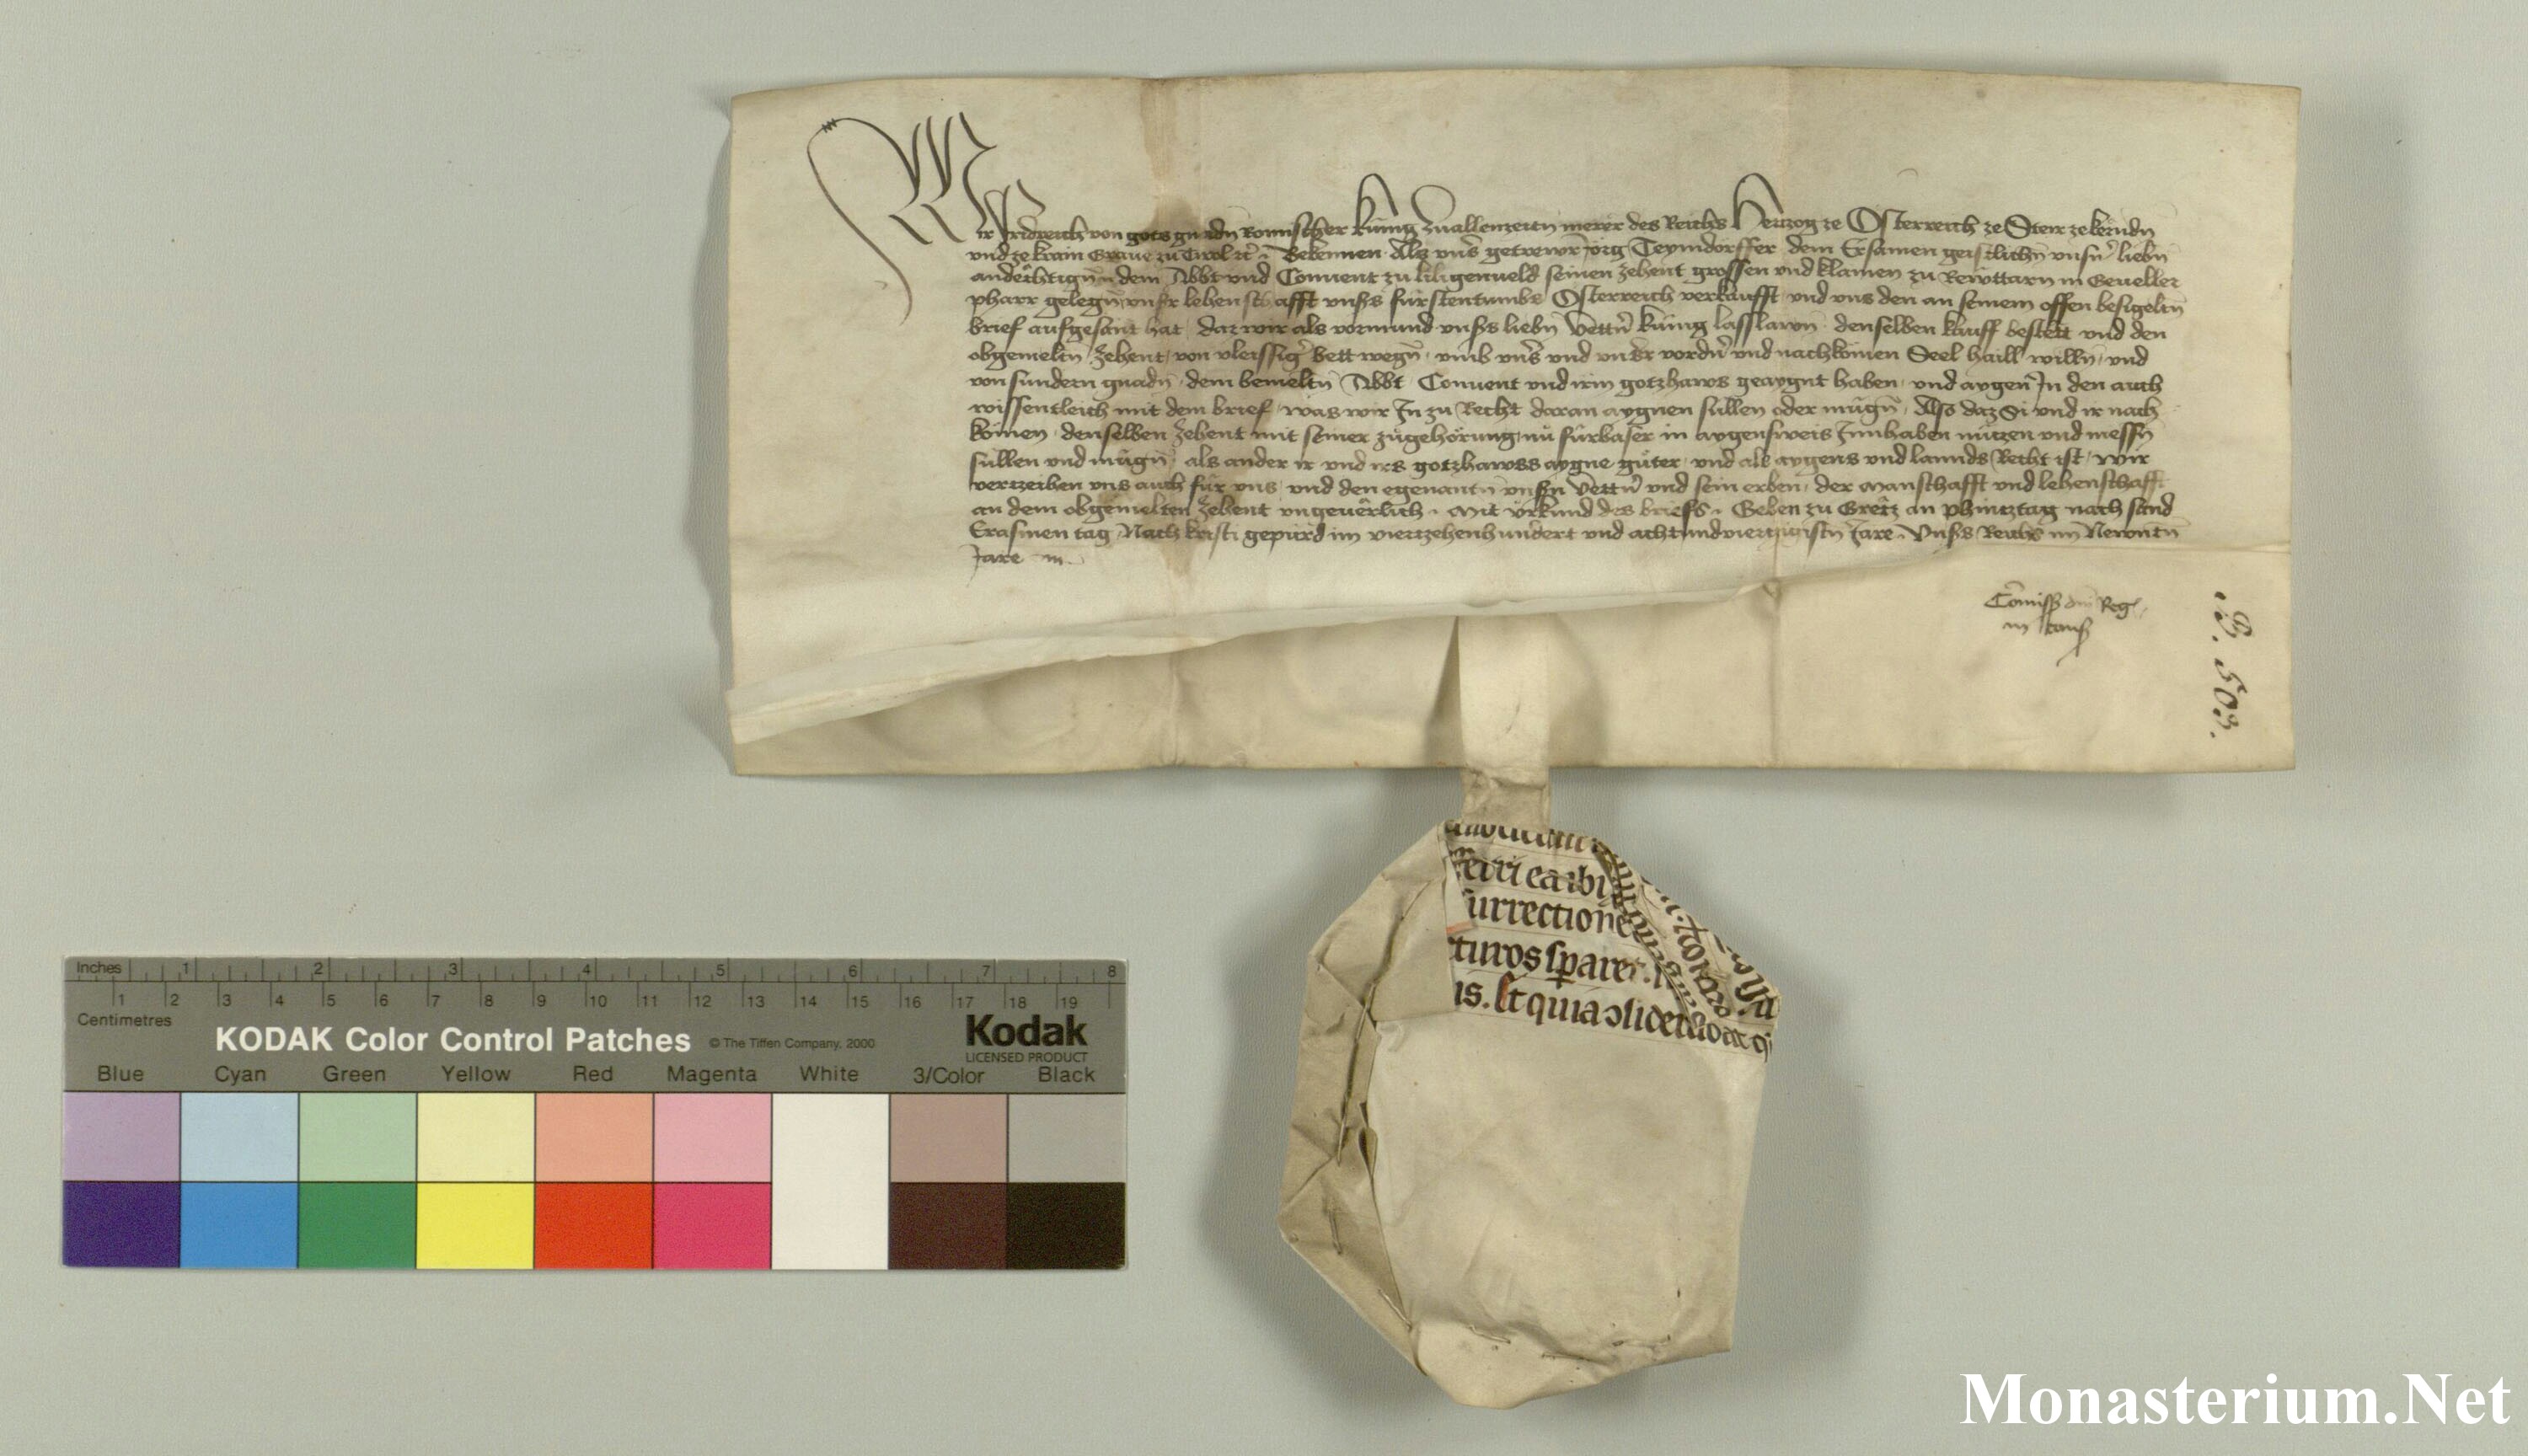 Wir Fridreich von gots gnadn Romischer kunig zuallenzeitn merer des Reichs Hertzog ze Osterreich ze Steir ze kerndn
und ze krain Graue zu Tirol etc̃ Bekennen Als unser getrewr Jorg Teymdorffer dem Ersamen geistlichn̄ unsn̄ liebn̄
andechtign̄ dem Abbt und Conuent zu liligenueld seinen zehent grossen und klainen zu in Geueller
pharr gelegn̄ unsr lehenschafft unsers fürstentumbs Osterreich verkaufft und uns den an seinem offen besigeltn̄
brief aufgesant hat daz wir als vormund unsers liebn̄ vettn̄ kunig lasslawn denselben kauff bestett und den
obgemeltn̄ zehent von vleissigr bett wegn̄ umb unser und unsr vordn̄ und nachkomen Seel haill willn̄ und
von sundern gnadn̄ dem bemeltn̄ Abbt Conuent und irm gotzhaws geaygnt haben und aygen In den auch
wissentleich mit dem brief was wir In zu Recht daran aygnen sullen oder mugn̄ Also daz Si und ir nach
komen denselben zehent mit seiner zugehörung nu fürbaser in aygensweis Innhaben nutzen und niessn̄
sullen und mugn̄ als ander ir und irs gotzhawss aygne güter und als aygens und lannds Recht ist wir
verzeihen uns auch für uns und den egenantn̄ unsn̄ vettn̄ und sein erben der manschafft und lehenschafft
an dem obgemelten zehent ungeuêrlich mit urkund des briefs Geben zu Gretz an phintztag nach sand
Erasmen tag Nach kristi gepurd im viertzehenhundert und achtundviertzigistn̄ Jare Unsers Reichs im Newntn̄
Jare
Cōmiss dn̄i Reg
in
B. 503.
urrectione
turos
is. Et quia
Inches 1 2 3 4 5 6 7 8
1 2 3 4 5 6 7 8 9 10 11 12 13 14 15 16 17 18 19
Centimetres
KODAK Color Control Patches © The Tiffen Company, 2000 Kodak
LICENSED PRODUCT
Blue Cyan Green Yellow Red Magenta White 3/Color Black
Monasterium.Net